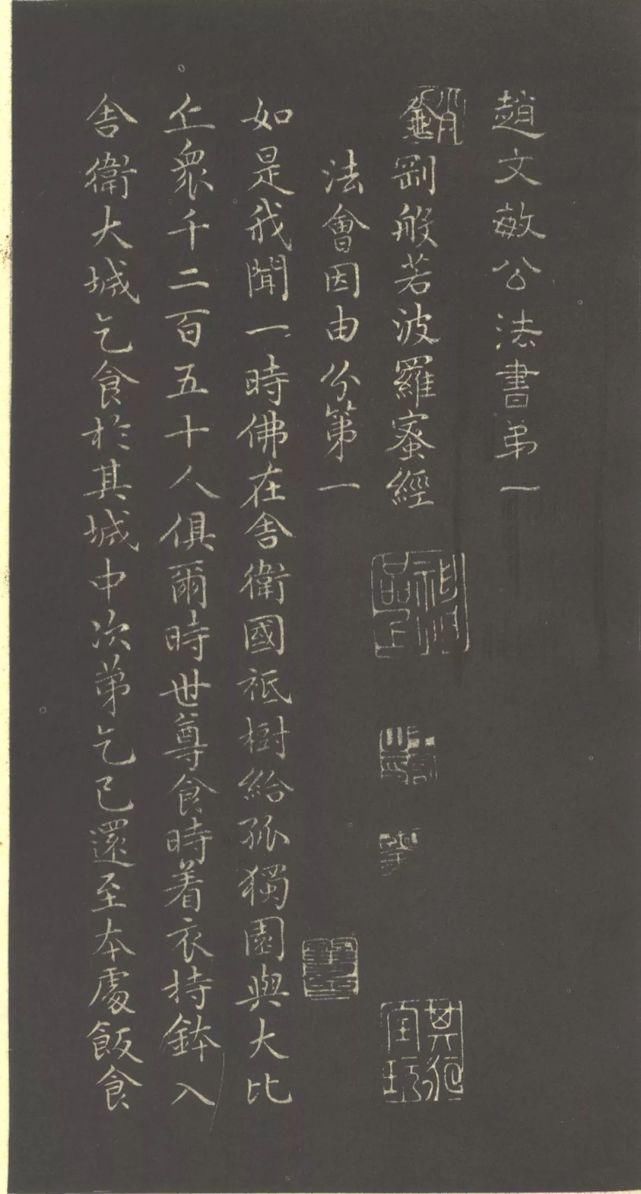 趙文敏公法書弟一
金剛般若波羅蜜經
法會因由分第一
如是我聞一時佛在舍衛國祇樹給孤獨園與大比
丘眾千二百五十人俱爾時世尊食時着衣持鉢入
舍衛大城乞食於其城中次第乞已還至本處飯食